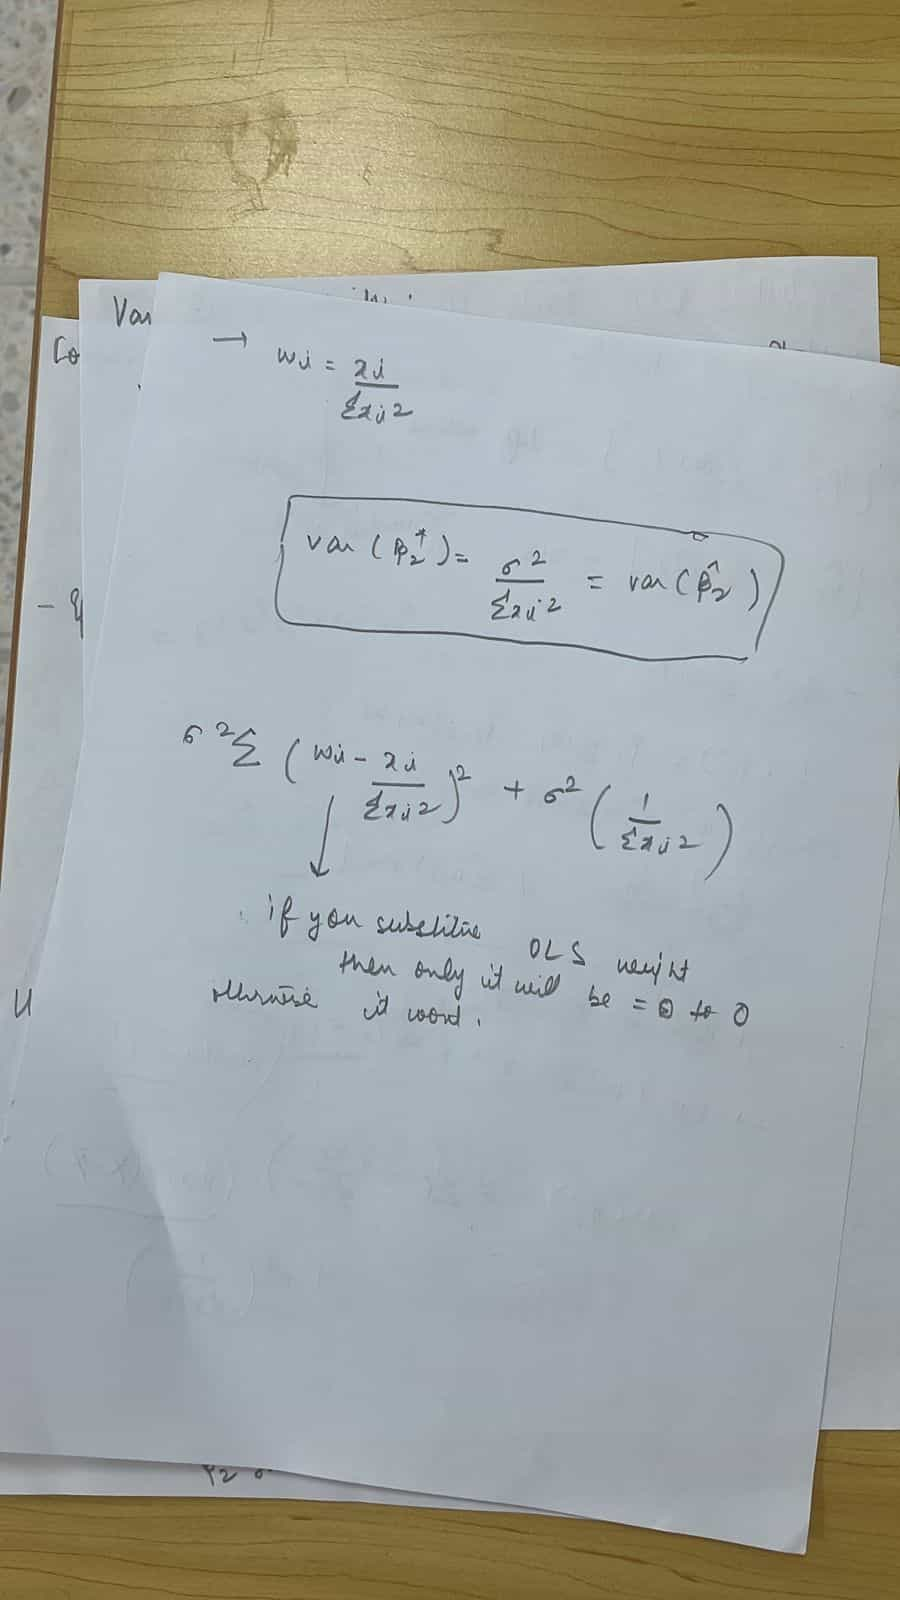 Var
Co
→ wi = xi / Σxi²
var (β₂*) = σ² / Σxi² = var (β̂₂)
- q
σ² Σ ( wi - xi / Σxi² )² + σ² ( 1 / Σxi² )
↓
if you substitue OLS weight
then only it will be = 0 to 0
otherwise it wont.